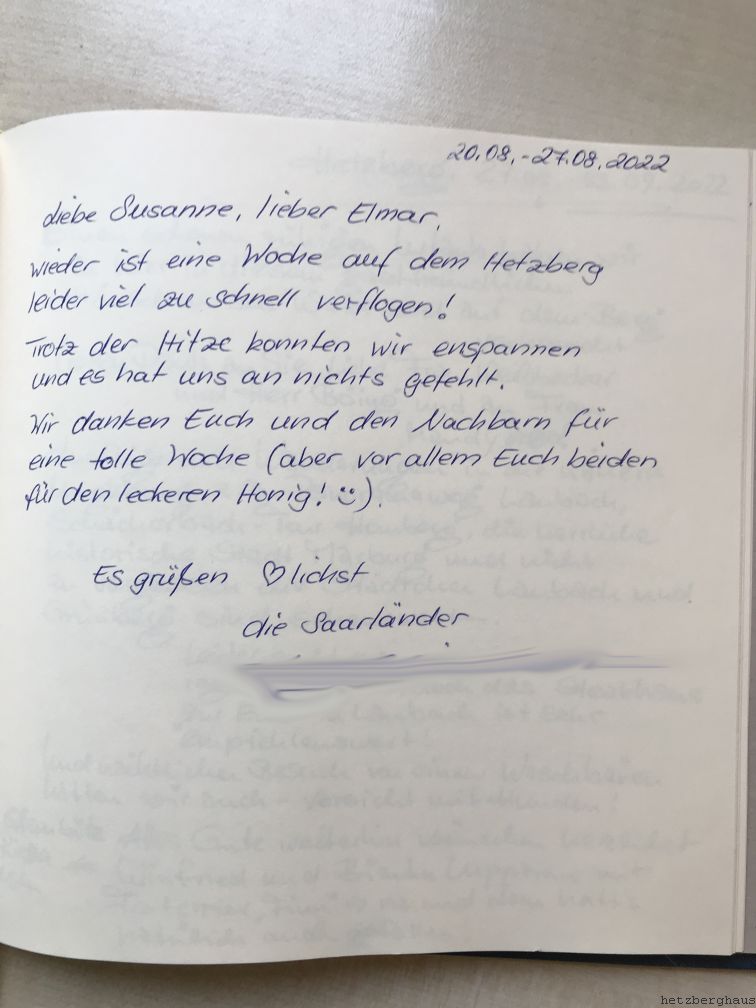 20.08.-27.08.2022
Liebe Susanne, lieber Elmar,
wieder ist eine Woche auf dem Hetzberg
leider viel zu schnell verflogen!
Trotz der Hitze konnten wir enspannen
und es hat uns an nichts gefehlt.
Wir danken Euch und den Nachbarn für
eine tolle Woche (aber vor allem Euch beiden
für den leckeren Honig! ☺).
Es grüßen ♡lichst
die Saarländer
hetzberghaus